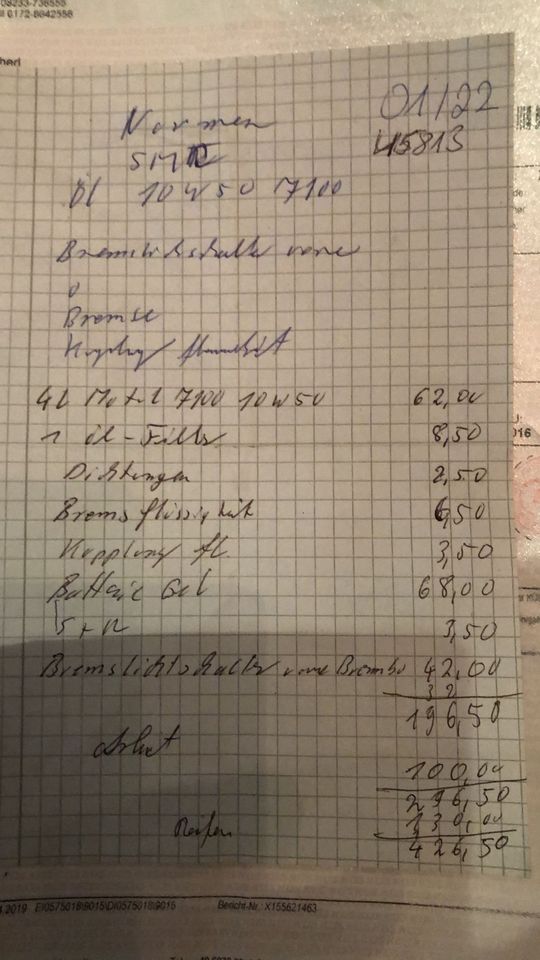 08233-736555
0172-8642556
01/22
Normen
45813
SMR
Öl 10W50 7100
Bremslichtschalter vorne
Bremse
4L Motul 7100 10W50 62,00
1 Öl-Filter 8,50
Dichtungen 2,50
Bremsflüssigkeit 6,50
Kupplung fl. 3,50
Batterie Gel 68,00
3,50
Bremslichtschalter vorne Brembo 42,00
32
196,50
Arbeit 100,00
296,50
Reifen 130,00
426,50
016
.2019 EI0575018\9015\DI0575018\9015 Bericht-Nr.: X155621463